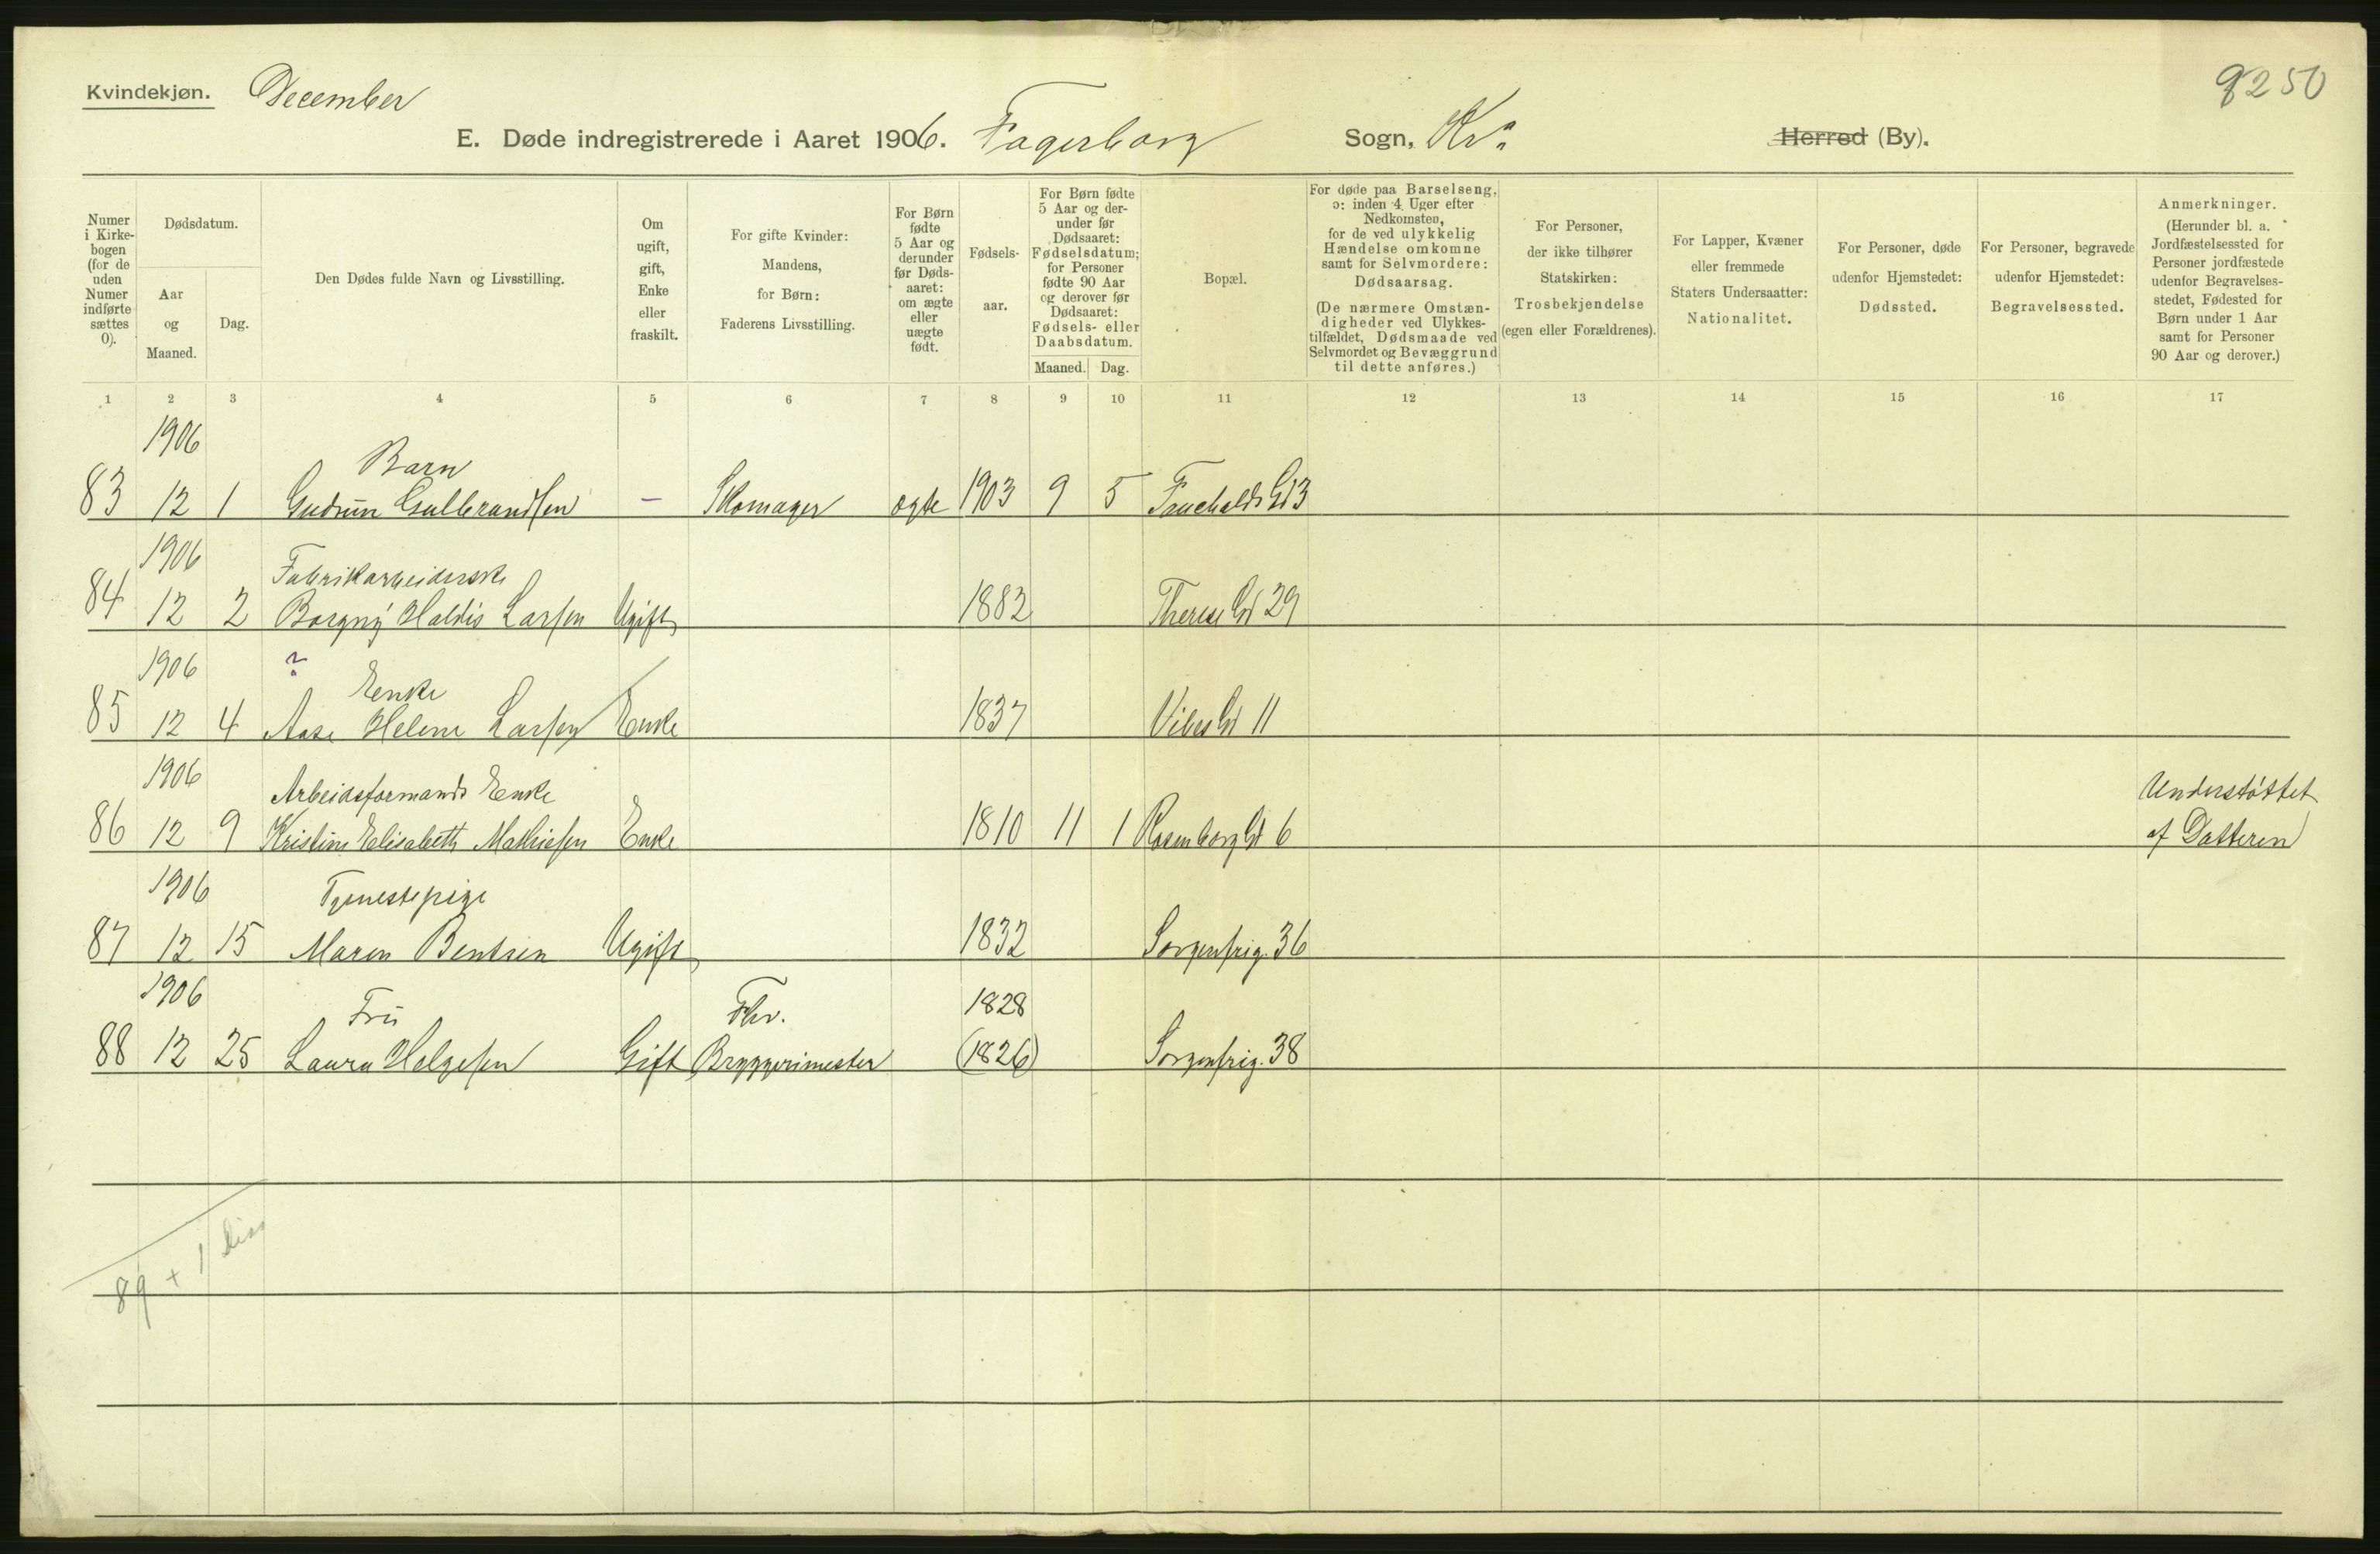 Kvindekjøn. December
9250
E. Døde indregistrerede i Aaret 1906. Fagerborg Sogn, Kra Herred (By).
Numer i Kirkebogen (for de uden Numer indførte sættes 0).
Dødsdatum.
Aar og Maaned.
Dag.
Den Dødes fulde Navn og Livsstilling.
Om ugift, gift, Enke eller fraskilt.
For gifte Kvinder: Mandens, for Børn: Faderens Livsstilling.
For Børn fødte 5 Aar og derunder før Dødsaaret: om ægte eller uægte født.
Fødselsaar.
For Børn fødte 5 Aar og derunder før Dødsaaret: Fødselsdatum; for Personer fødte 90 Aar og derover før Dødsaaret: Fødsels- eller Daabsdatum.
Maaned. Dag.
Bopæl.
For døde paa Barselseng, ɔ: inden 4 Uger efter Nedkomsten, for de ved ulykkelig Hændelse omkomne samt for Selvmordere: Dødsaarsag.
(De nærmere Omstændigheder ved Ulykkestilfældet, Dødsmaade ved Selvmordet og Bevæggrund til dette anføres.)
For Personer, der ikke tilhører Statskirken: Trosbekjendelse (egen eller Forældrenes).
For Lapper, Kvæner eller fremmede Staters Undersaatter: Nationalitet.
For Personer, døde udenfor Hjemstedet: Dødssted.
For Personer, begravede udenfor Hjemstedet: Begravelsessted.
Anmerkninger. (Herunder bl. a. Jordfæstelsessted for Personer jordfæstede udenfor Begravelsesstedet, Fødested for Børn under 1 Aar samt for Personer 90 Aar og derover.)
1 2 3 4 5 6 7 8 9 10 11 12 13 14 15 16 17
1906 Barn
83 12 1 Gudrun Gulbrandsen - Skomager ægte 1903 9 5 Fauchalds Gd 3
1906 Fabrikarbeiderske
84 12 2 Borgny Haldis Larsen Ugift 1882 Therese Gd 29
1906 ? Enke
85 12 4 Aase Helene Larsen Enke 1837 Vibes Gd 11
1906 Arbeidsformands Enke Understøttet
86 12 9 Kristine Elisabeth Mathiesen Enke 1810 11 1 Rosenborg Gd 6 af Datteren
1906 Tjenestepige
87 12 15 Maren Bentsen Ugift 1832 Sorgenfrig. 36
1906 Fru Fhv. 1828
88 12 25 Laura Helgesen Gift Bryggerimester (1826) Sorgenfrig. 38
89 + 1